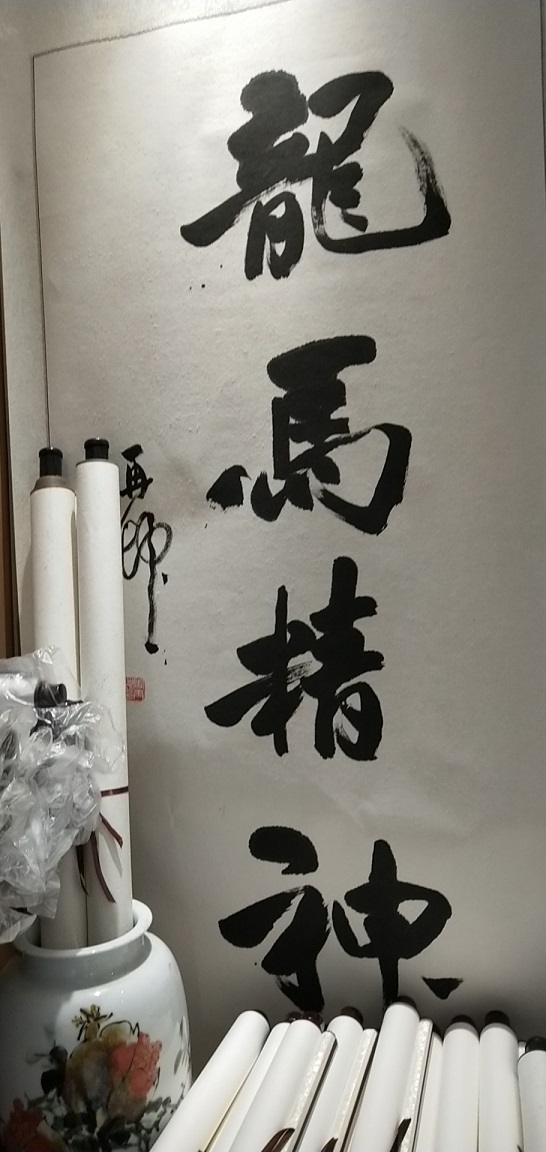 龍馬精神
再師